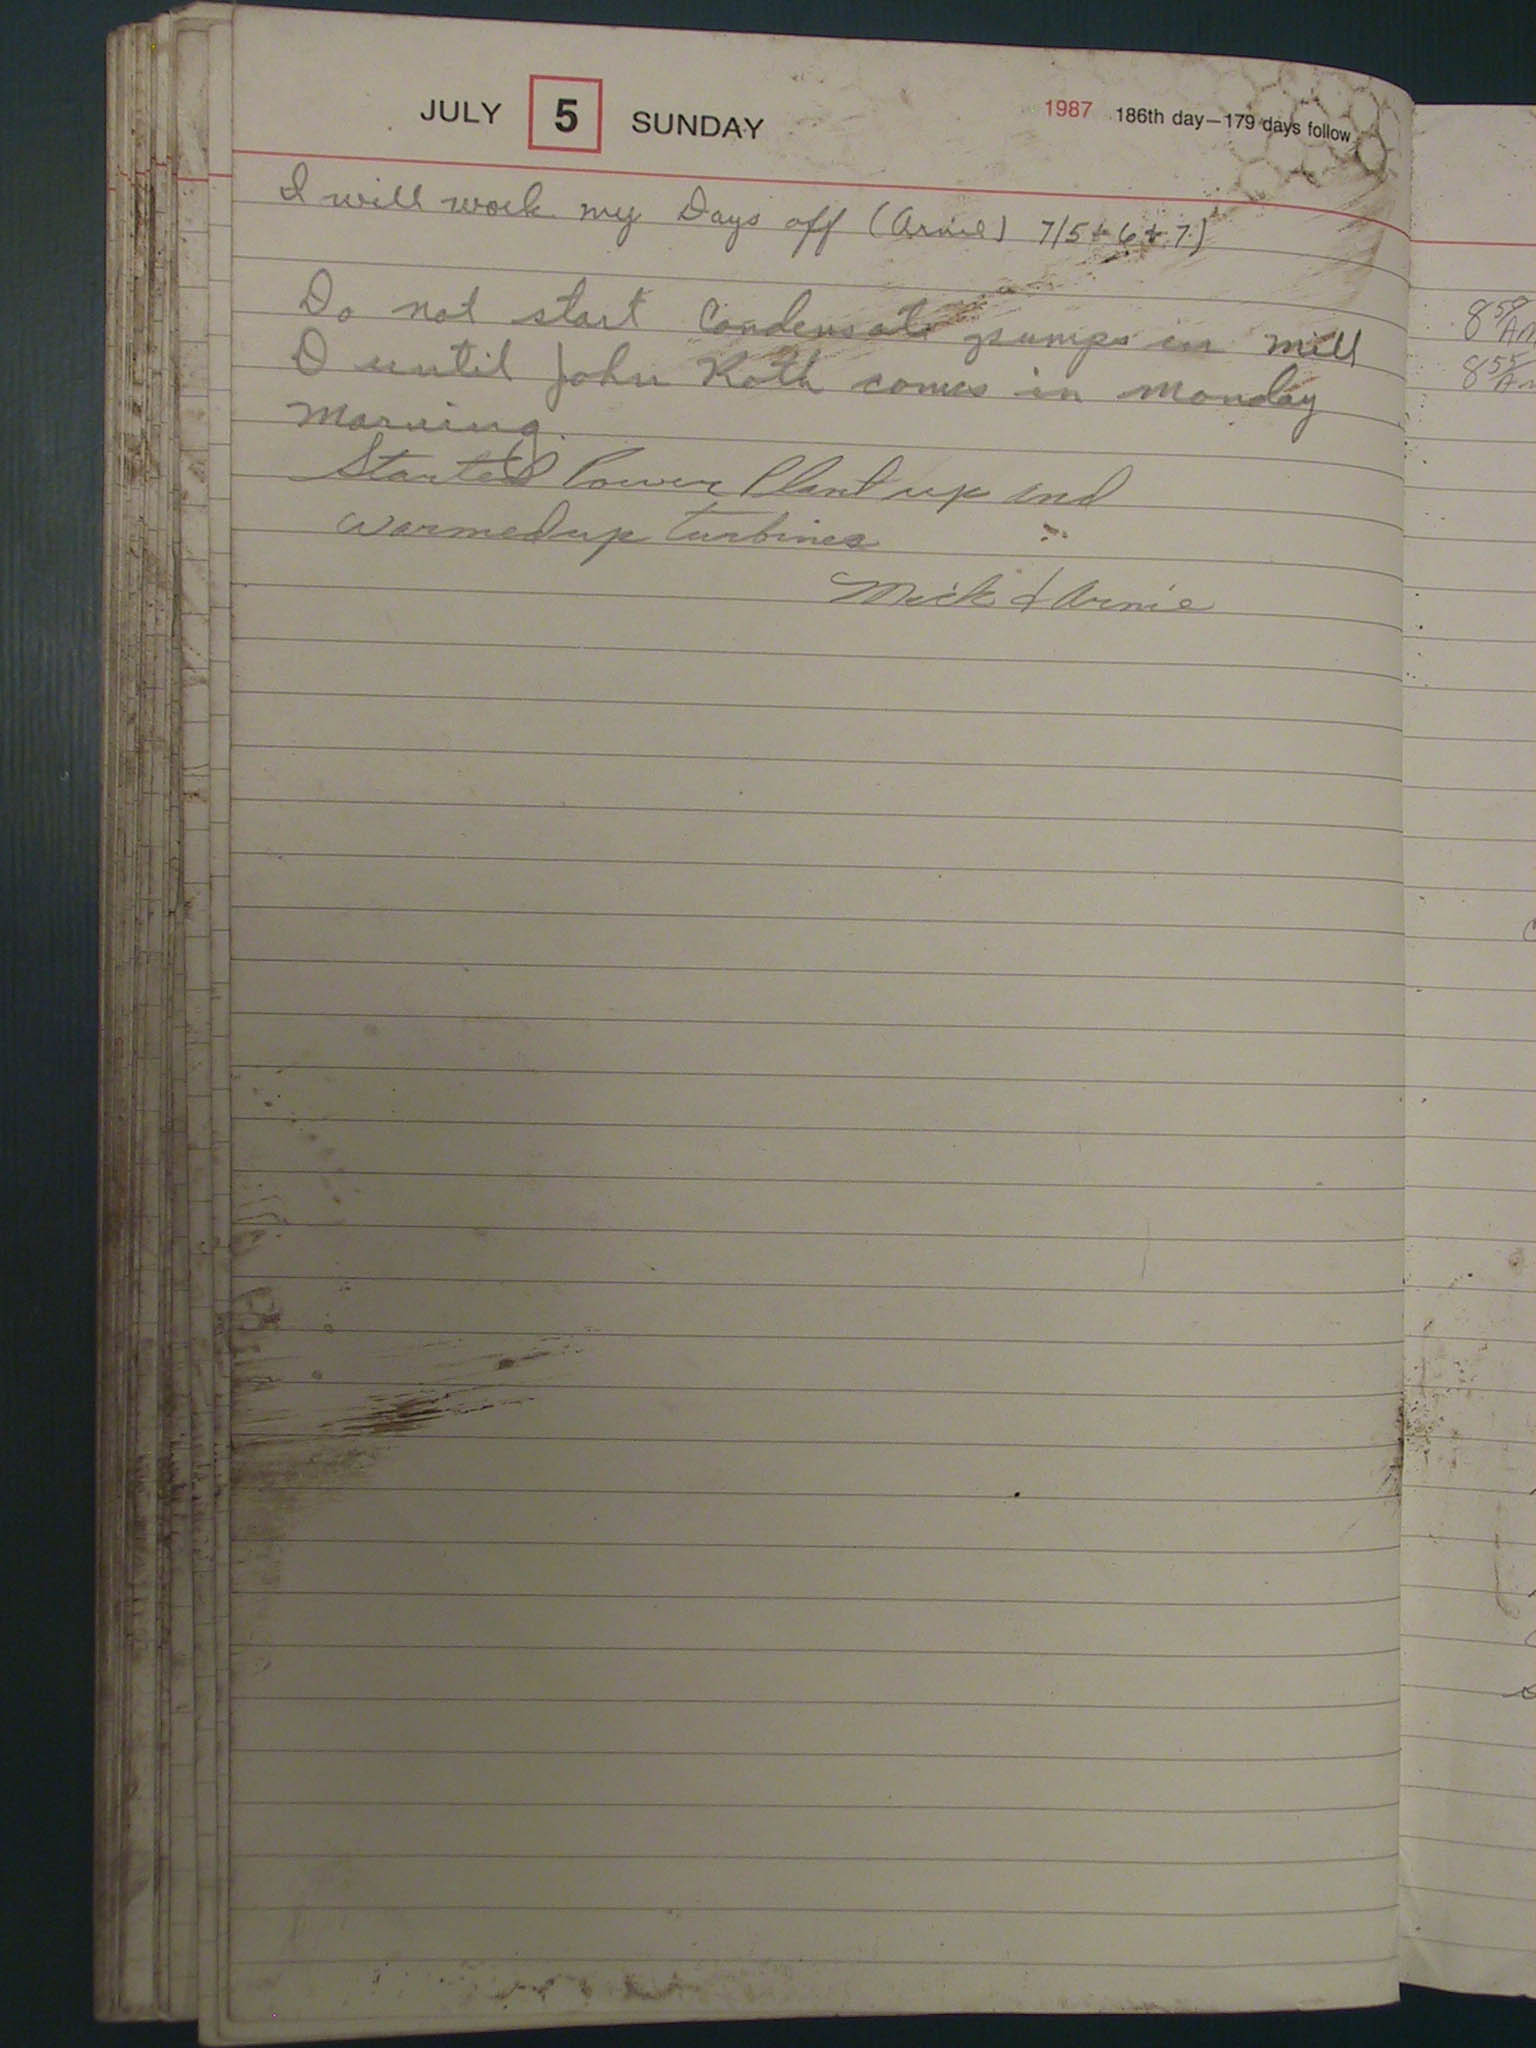 JULY 5 SUNDAY 1987 186th day—179 days follow
I will work my Days off (Arnie) 7/5+6+7)
Do not start Condensate pumps in mill
D until John Roth comes in monday
morning.
Started Power Plant up and
warmed up turbines
Mick & Arnie
8 58 AM
8 55 AM